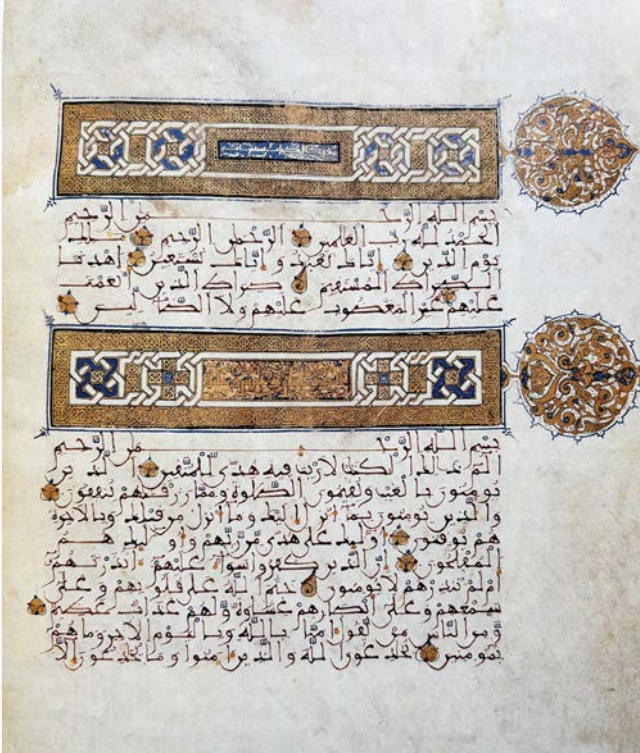 بسم الله الرحمن الرحيم
الحمد لله رب العلمين الرحمن الرحيم ملك
يوم الدين اياك نعبد واياك نستعين اهدنا
الصراط المستقيم صراط الذين انعمت
عليهم غير المغضوب عليهم ولا الضالين
بسم الله الرحمن الرحيم
الم ذلك الكتب لا ريب فيه هدى للمتقين الذين
يومنون بالغيب ويقيمون الصلوة ومما رزقنهم ينفقون
والذين يومنون بما انزل اليك وما انزل من قبلك وبالاخرة
هم يوقنون اوليك على هدى من ربهم واوليك هم
المفلحون ان الذين كفروا سوا عليهم انذرتهم
ام لم تنذرهم لا يومنون ختم الله على قلوبهم وعلى
سمعهم وعلى ابصرهم غشوة ولهم عذاب عظيم
ومن الناس من يقول امنا بالله وباليوم الاخر وما هم
بمومنين يخدعون الله والذين امنوا وما يخدعون الا